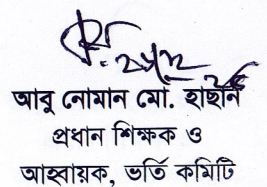 আবু নোমান মো. হাছান
প্রধান শিক্ষক ও
আহবায়ক, ভর্তি কমিটি